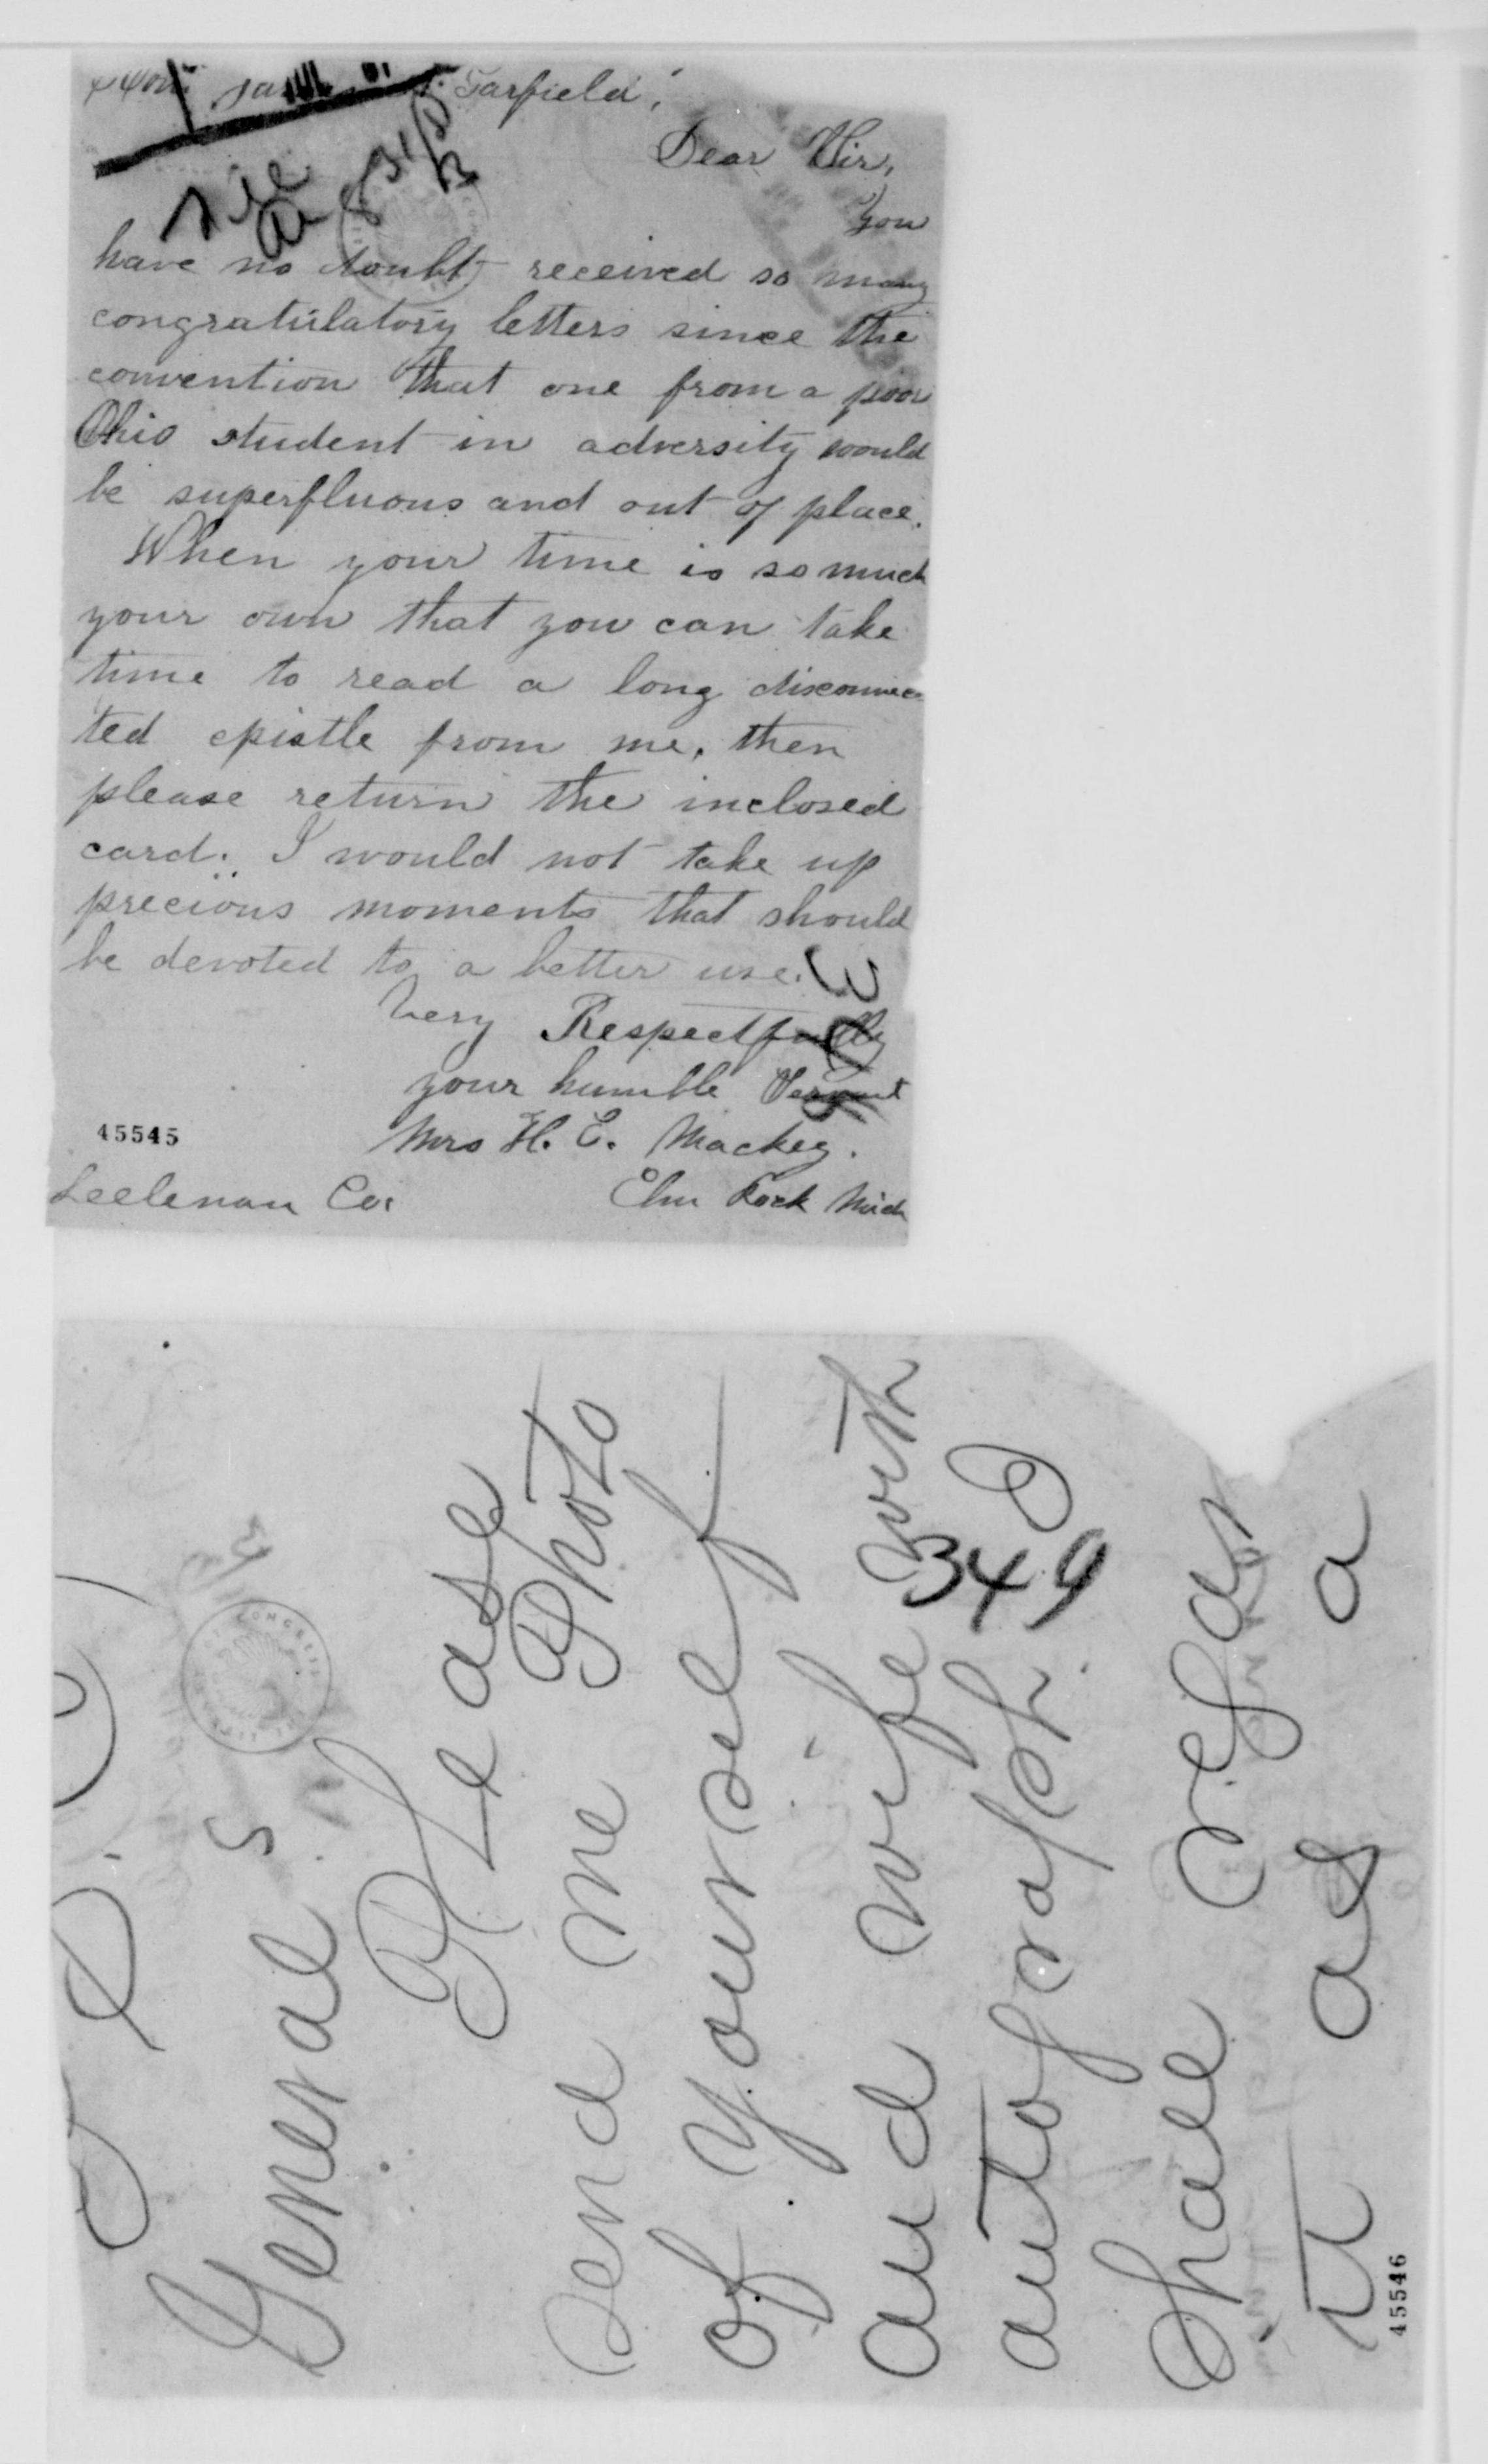 Hon. James A. Garfield,
Dear Sir,
You
have no doubt received so many
congratulatory letters since the
convention that one from a poor
Ohio student in adversity would
be superfluous and out of place.
When your time is so much
your own that you can take
time to read a long disconnec
ted epistle from me, then
please return the inclosed
card. I would not take up
precious moments that should
be devoted to a better use.
Very Respectfully
your humble Servant
Mrs H. E. Mackey.
45545
Leelenau Co. Elm Rock Mich
General
Please
send me Photo
of yourself
and wife with
349
autograph.
Shall regar
it as a
45546